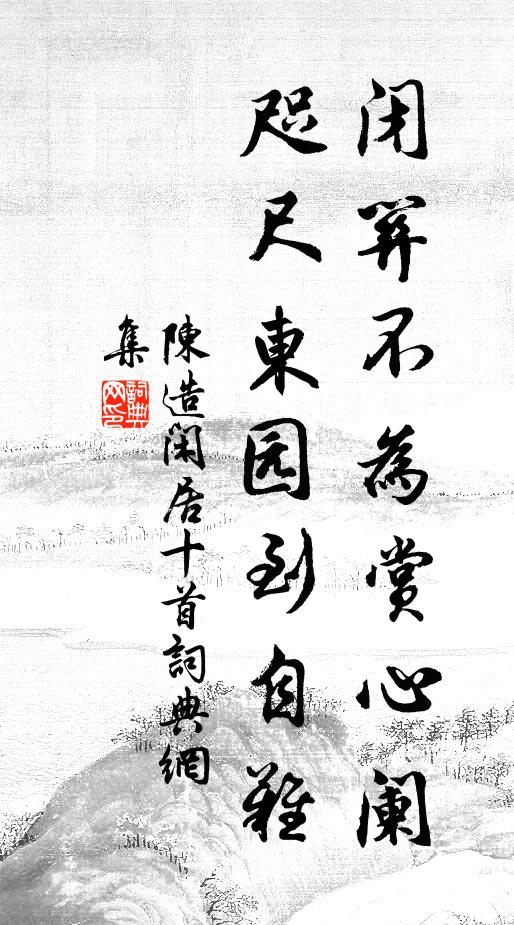 闭關不為賞心阑
咫尺東园到自難
陳造閑居十首詞典網
集
詞典
网印